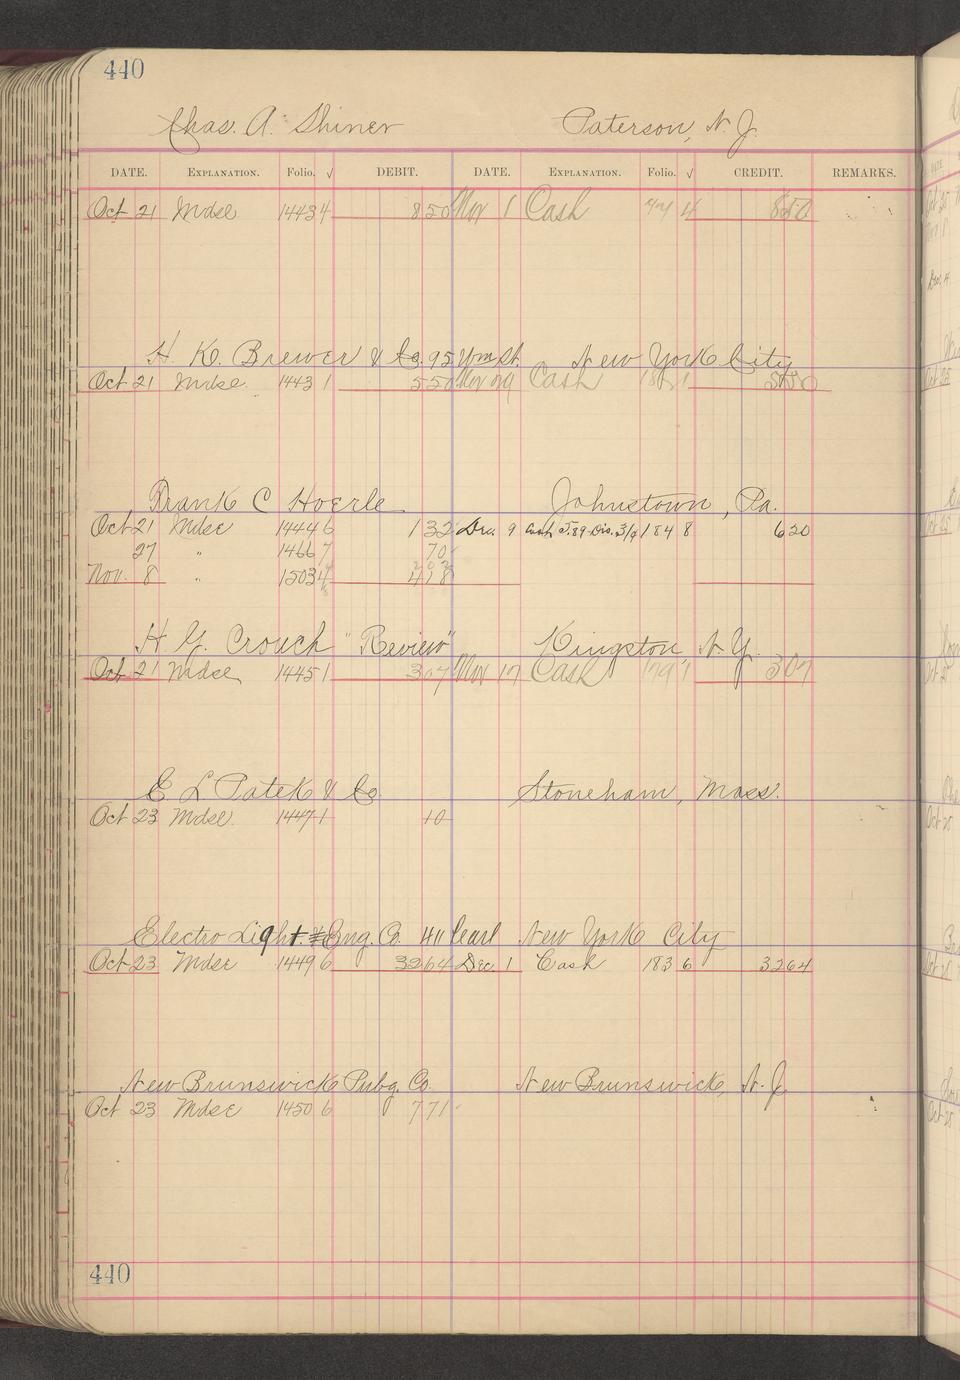 440
Chas. A. Shiner Paterson, N. J.
DATE. EXPLANATION. Folio. √ DEBIT. DATE. EXPLANATION. Folio. √ CREDIT. REMARKS.
Oct 21 Mdse 1443 4 8 50 Nov 1 Cash 4 8 50
H. K. Brewer & Co. 95 Wm St. New York City
Oct 21 Mdse 1443 1 5 50 Nov 29 Cash 5 50
Frank C Hoerle Johnstown, Pa.
Oct 21 Mdse 1444 6 1 32 Dec. 9 Cash 5.89 Dis. 3/9 184 8 6 20
27 " 1466 7 70
2 02
Nov. 8 " 1503 4 18
H. G. Crouch "Review" Kingston, N. Y.
Oct 21 Mdse 1445 1 3 07 Nov 17 Cash 179 1 3 07
E L Patek & Co Stoneham, Mass.
Oct 23 Mdse. 1447 1 10
Electro Light & Eng. Co. 411 Pearl New York City
Oct 23 Mdse 1449 6 32 64 Dec. 1 Cash 183 6 32 64
New Brunswick Pubg. Co. New Brunswick, N. J.
Oct 23 Mdse 1450 6 7 71
440